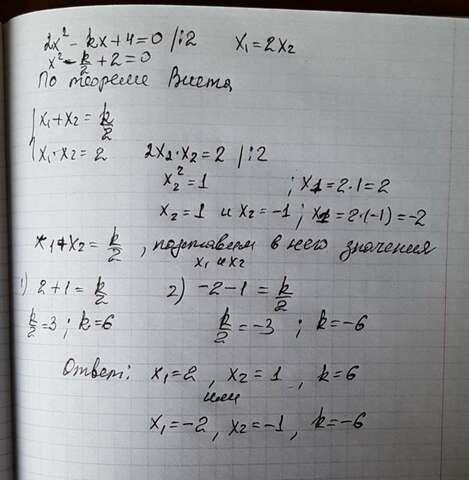 2x² - kx + 4 = 0 /:2 x₁ = 2x₂
x² - k/2 + 2 = 0
По теореме Виета
x₁ + x₂ = k/2
x₁ · x₂ = 2 2x₂ · x₂ = 2 /:2
x₂² = 1 ; x₁ = 2·1 = 2
x₂ = 1 и x₂ = -1 ; x₁ = 2·(-1) = -2
x₁ + x₂ = k/2 , подставим в него значения
x₁ и x₂
1) 2 + 1 = k/2 2) -2 - 1 = k/2
k/2 = 3 ; k = 6 k/2 = -3 ; k = -6
Ответ: x₁ = 2 , x₂ = 1 , k = 6
или
x₁ = -2 , x₂ = -1 , k = -6